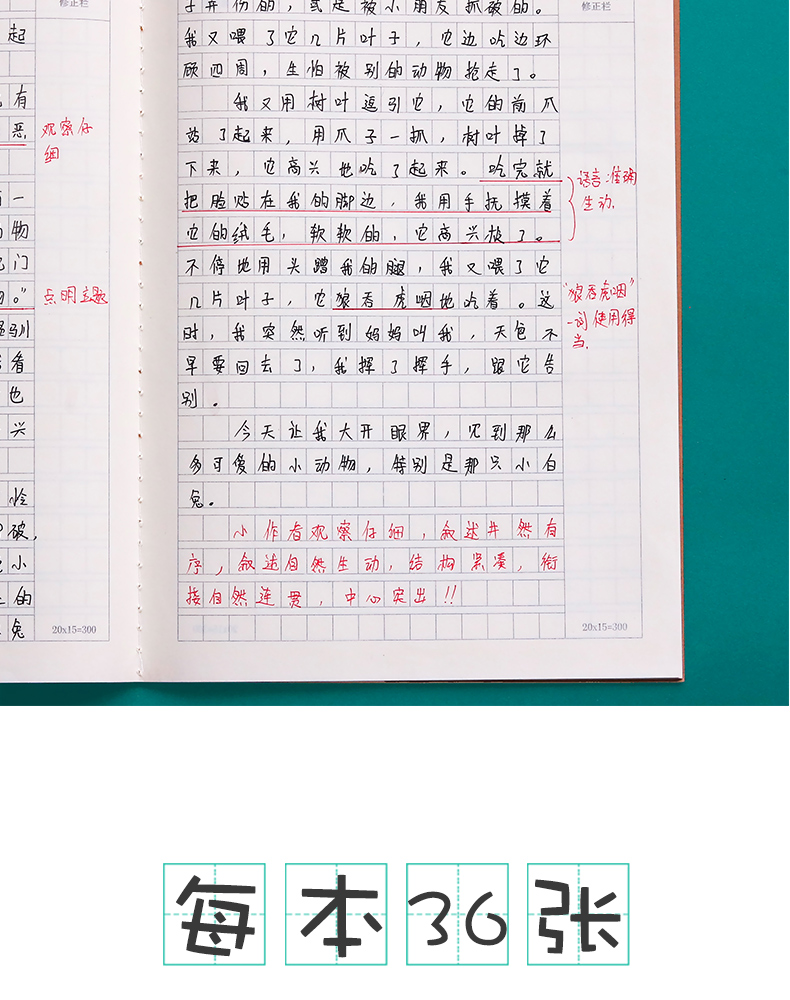 修正栏
起
有
恶
一
物
门
。”
驯
看
也
兴
怜
破，
小
的
兔
观察仔
细
点明主题
20x15=300
修正栏
被小朋友抓破的。
我又喂了它几片叶子，它边吃边环
顾四周，生怕被别的动物抢走了。
我又用树叶逗引它，它的前爪
站了起来，用爪子一抓，树叶掉了
下来，它高兴地吃了起来。吃完就
把脸贴在我的脚边，我用手抚摸着
它的绒毛，软软的，它高兴极了。
不停地用头蹭我的腿，我又喂了它
几片叶子，它狼吞虎咽地吃着。这
时，我突然听到妈妈叫我，天色不
早要回去了，我挥了挥手，跟它告
别。
今天让我大开眼界，见到那么
多可爱的小动物，特别是那只小白
兔。
小作者观察仔细，叙述井然有
序，叙述自然生动，结构紧凑，衔
接自然连贯，中心突出!!
语言准确
生动.
“狼吞虎咽”
一词使用得
当.
20x15=300
每本36张